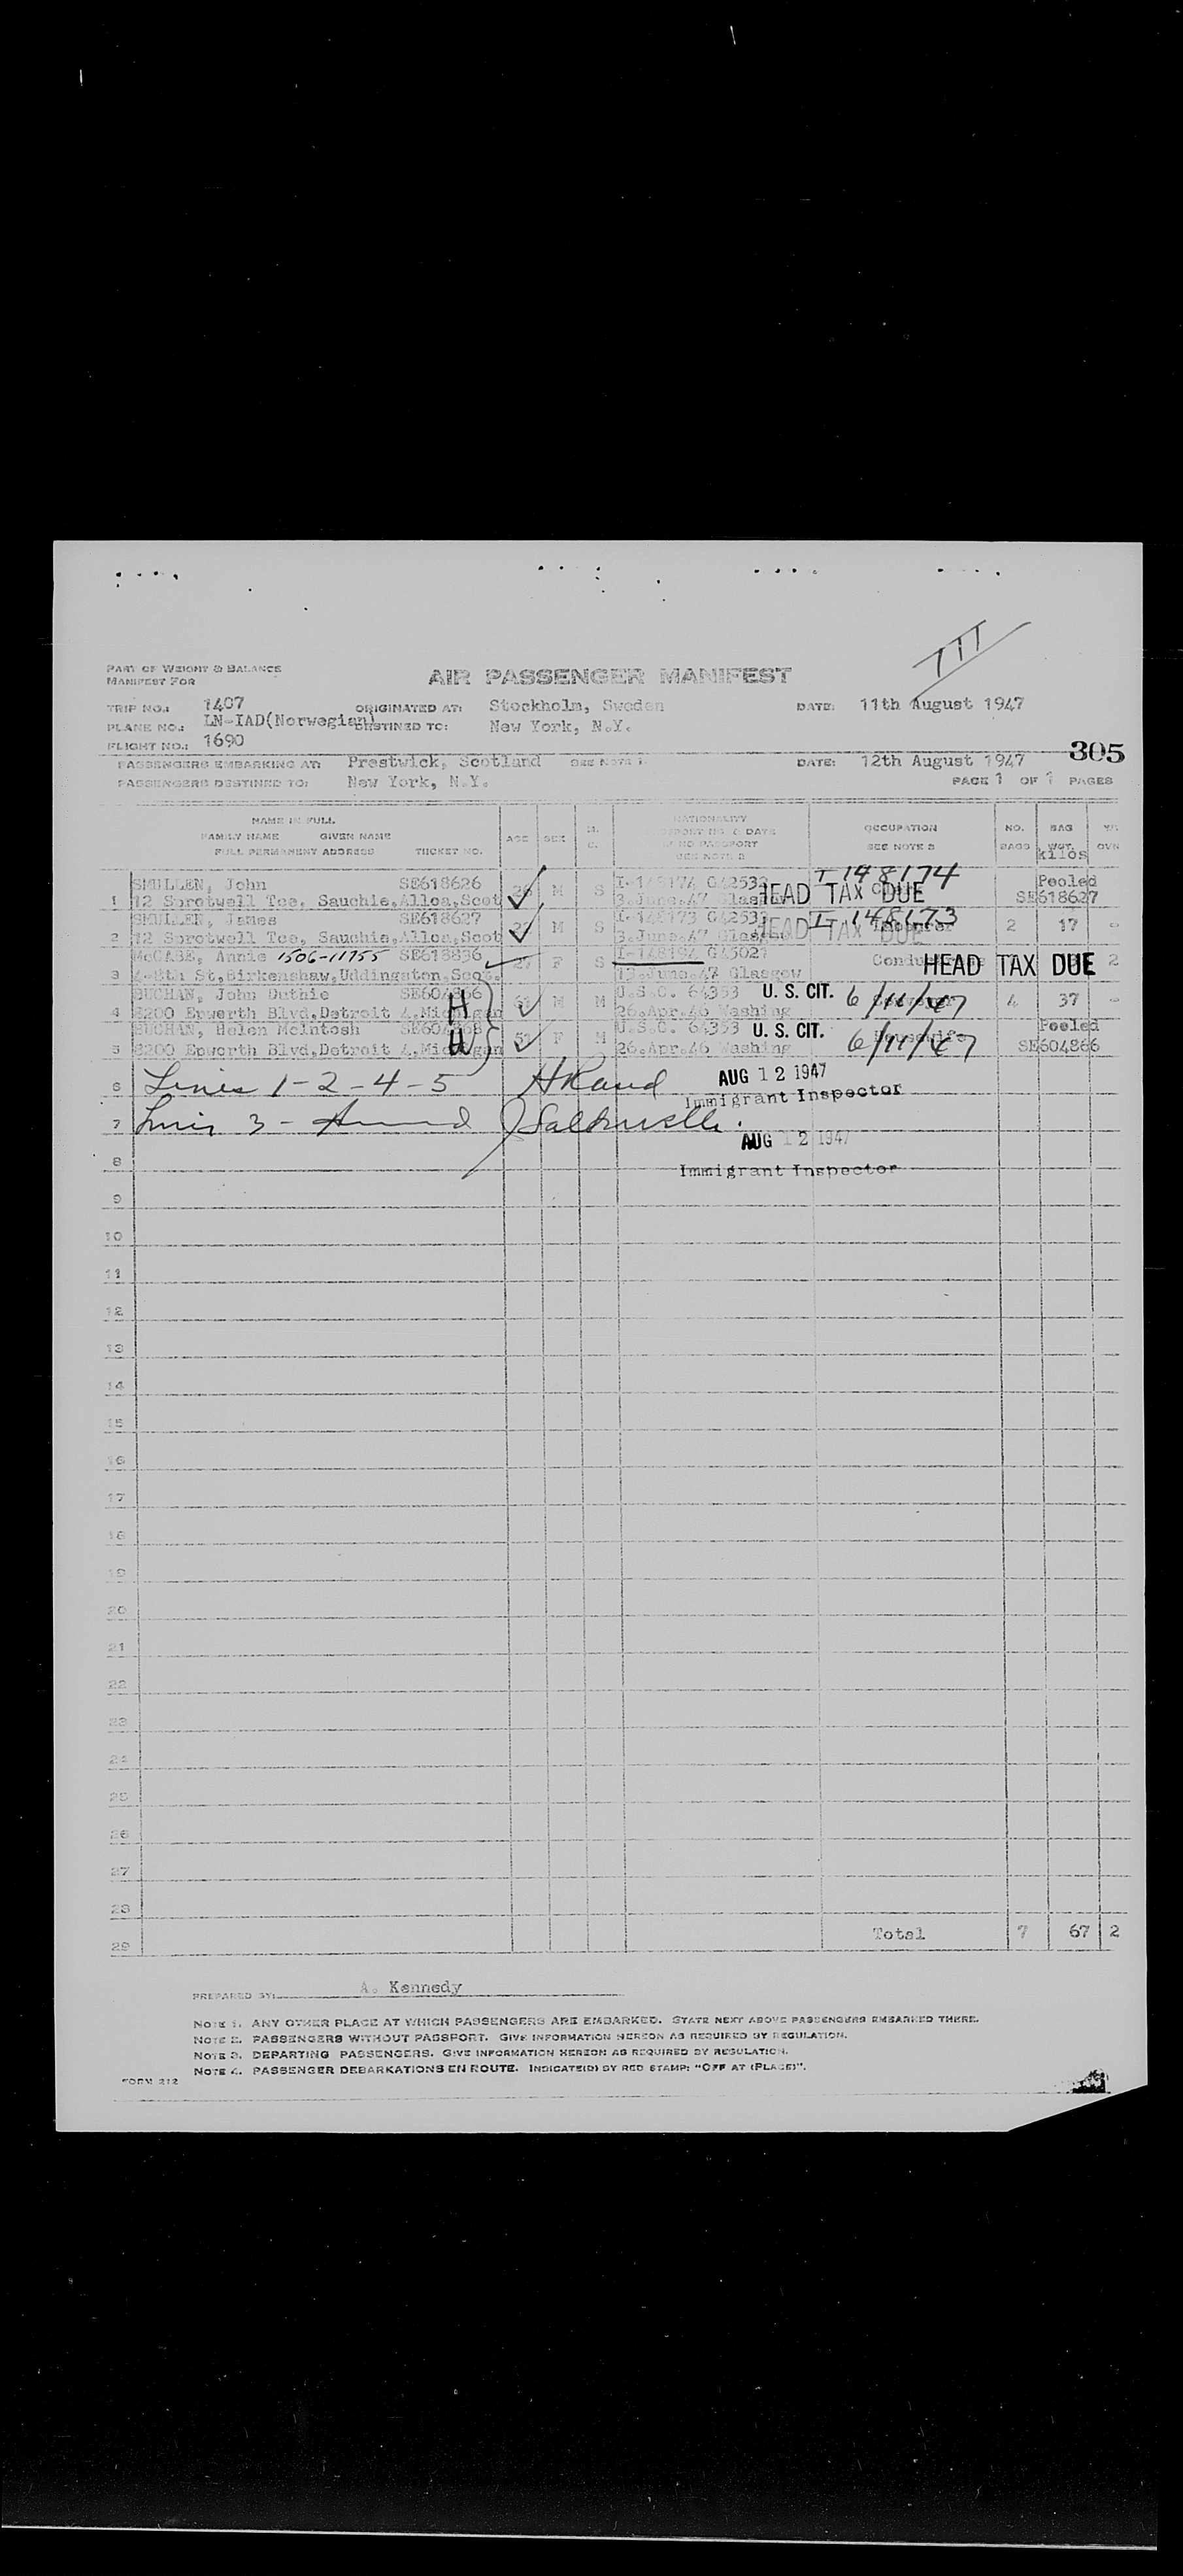 777
PART OF WEIGHT & BALANCE
MANIFEST FOR
AIR PASSENGER MANIFEST
TRIP NO.: 1407 ORIGINATED AT: Stockholm, Sweden DATE: 11th August 1947
PLANE NO.: LN-IAD(Norwegian) DESTINED TO: New York, N.Y.
FLIGHT NO.: 1690
305
PASSENGERS EMBARKING AT: Prestwick, Scotland SEE NOTE 1. DATE: 12th August 1947
PASSENGERS DESTINED TO: New York, N.Y. PAGE 1 OF 1 PAGES
NAME IN FULL NATIONALITY
FAMILY NAME GIVEN NAME AGE SEX PASSPORT NO. & DATE OCCUPATION NO. BAG
FULL PERMANENT ADDRESS TICKET NO. IF NO PASSPORT SEE NOTE 3 BAGS WGT.
SEE NOTE 2 kilos
I 148174
SMULLEN, John SE618626 M S I-148174 G42532 HEAD TAX DUE Pooled
1 12 Sprotwell Tce, Sauchie,Alloa,Scot 3.June.47 Glasgow SE618627
SMULLEN, James SE618627 M S I-148173 HEAD TAX DUE I-148173 2 17
2 12 Sprotwell Tce, Sauchie,Alloa,Scot 3.June.47 Glasgow
McCABE, Annie 1506-11755 SE618836 27 F S I-148194 G45021 HEAD TAX DUE 2
3 Birkenshaw,Uddingston,Scot. 13.June.47 Glasgow
BUCHAN, John Duthie SE604866 H M M U.S.C. 64353 U. S. CIT. 6/11/47 4 37
4 8200 Epworth Blvd,Detroit 4,Michigan 26.Apr.46 Washing
BUCHAN, Helen McIntosh SE604868 W F M U.S.C. 64353 U. S. CIT. 6/11/47 Pooled
5 8200 Epworth Blvd,Detroit 4,Michigan 26.Apr.46 Washing SE604866
6 Lines 1-2-4-5 AUG 12 1947
Immigrant Inspector
7 Line 3 -
AUG 12 1947
8 Immigrant Inspector
9
10
11
12
13
14
15
16
17
18
19
20
21
22
23
24
25
26
27
28
29 Total 7 67 2
PREPARED BY: A. Kennedy
NOTE 1. ANY OTHER PLACE AT WHICH PASSENGERS ARE EMBARKED. STATE NEXT ABOVE PASSENGERS EMBARKED THERE.
NOTE 2. PASSENGERS WITHOUT PASSPORT. GIVE INFORMATION HEREON AS REQUIRED BY REGULATION.
NOTE 3. DEPARTING PASSENGERS. GIVE INFORMATION HEREON AS REQUIRED BY REGULATION.
NOTE 4. PASSENGER DEBARKATIONS EN ROUTE. INDICATE(D) BY RED STAMP: "OFF AT (PLACE)".
FORM 212